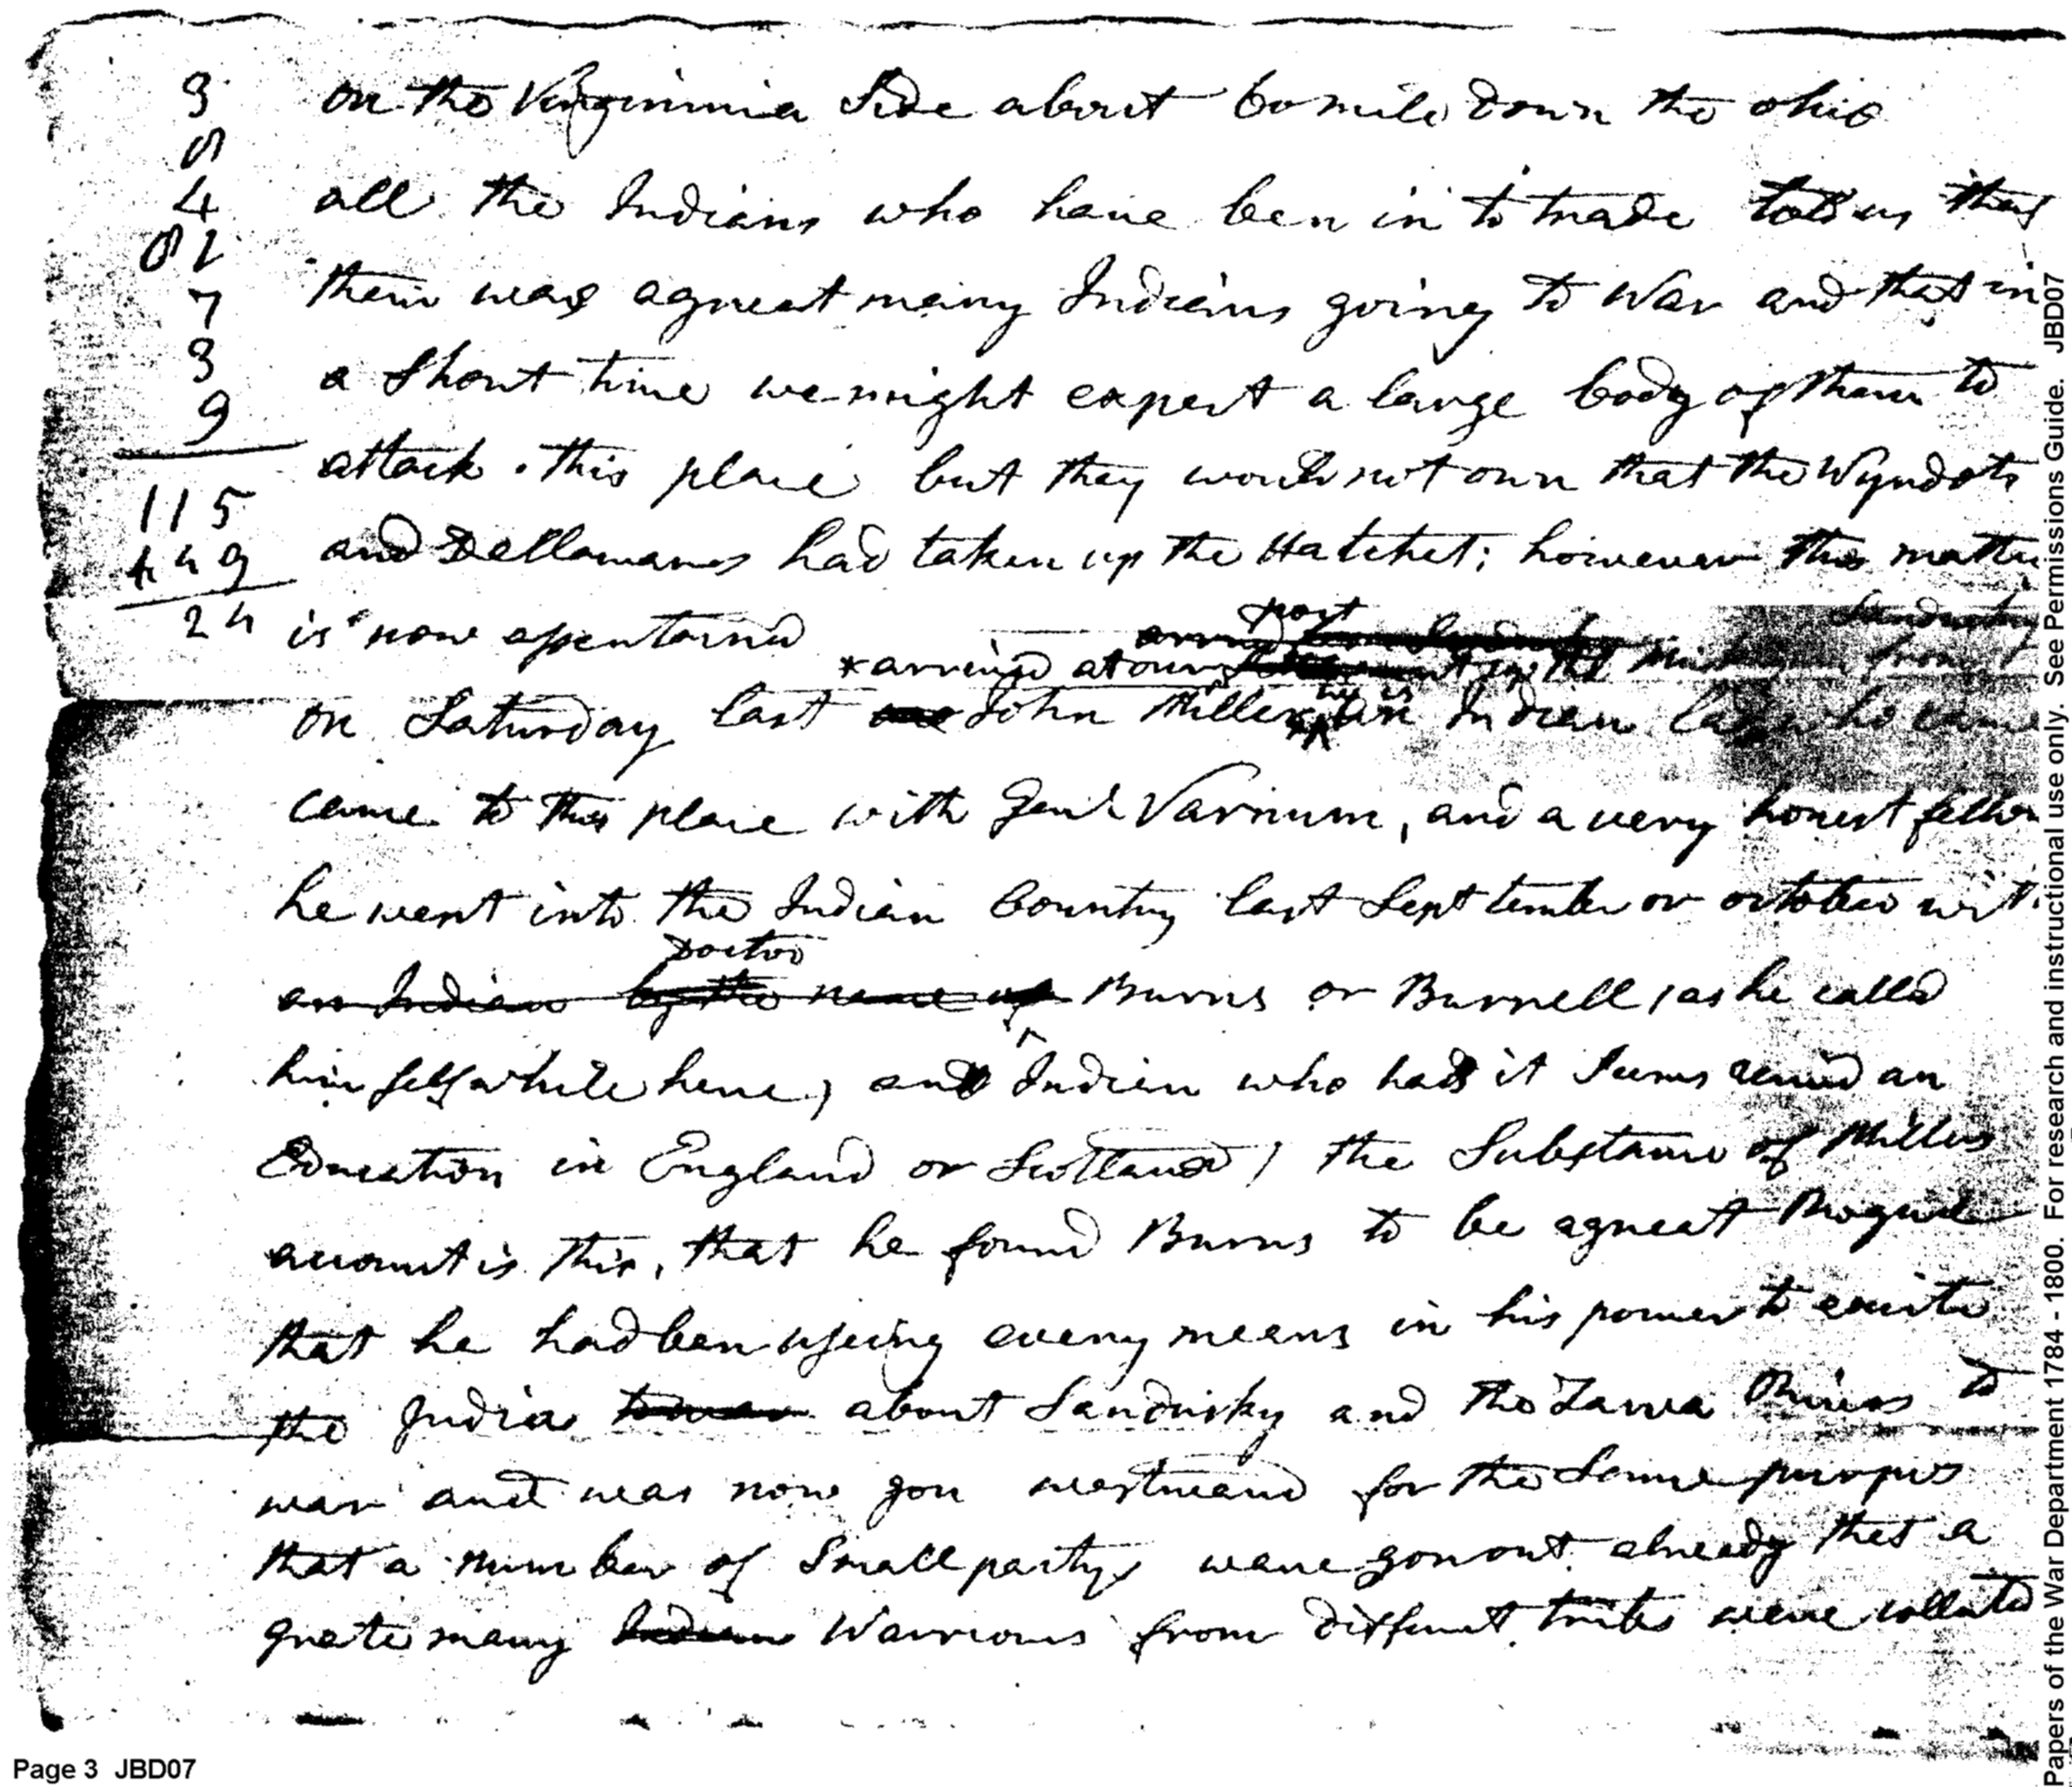 3
8
4
81
7
3
9
115
449
24
on the Virginnia Side about 60 mile down the ohio
all the Indians who have ben in to trade told us that
their was agreat many Indians going to War and that in
a Short time we might expect a large body of them to
attack this place but they would not own that the Wyndots
and Dellawares had taken up the Hatchet; however the matter
is now assertained
post
Sandusky
*arrived at our up the from
on Saturday last one John Miller he is an Indian lad who came
came to this place with Genl Varnum, and a very honest fellow
he went into the Indian Country last Septtember or october with
Doctor
an Indian by the name of Burns or Burnell (as he called
him self while here) an Indian who had it Seems received an
Education in England or Scotland) the Substance of Millers
account is this, that he found Burns to be agreat Rogue
that he had ben useing every means in his power to excite
the India to war about Sandusky and the Tawa Rivers to
war and was now gon westward for the Same purpus
that a number of Small partys ware gon out already thet a
grate many Indian Warriours from different tribes were collected
Page 3 JBD07
Papers of the War Department 1784 - 1800. For research and instructional use only. See Permissions Guide. JBD07